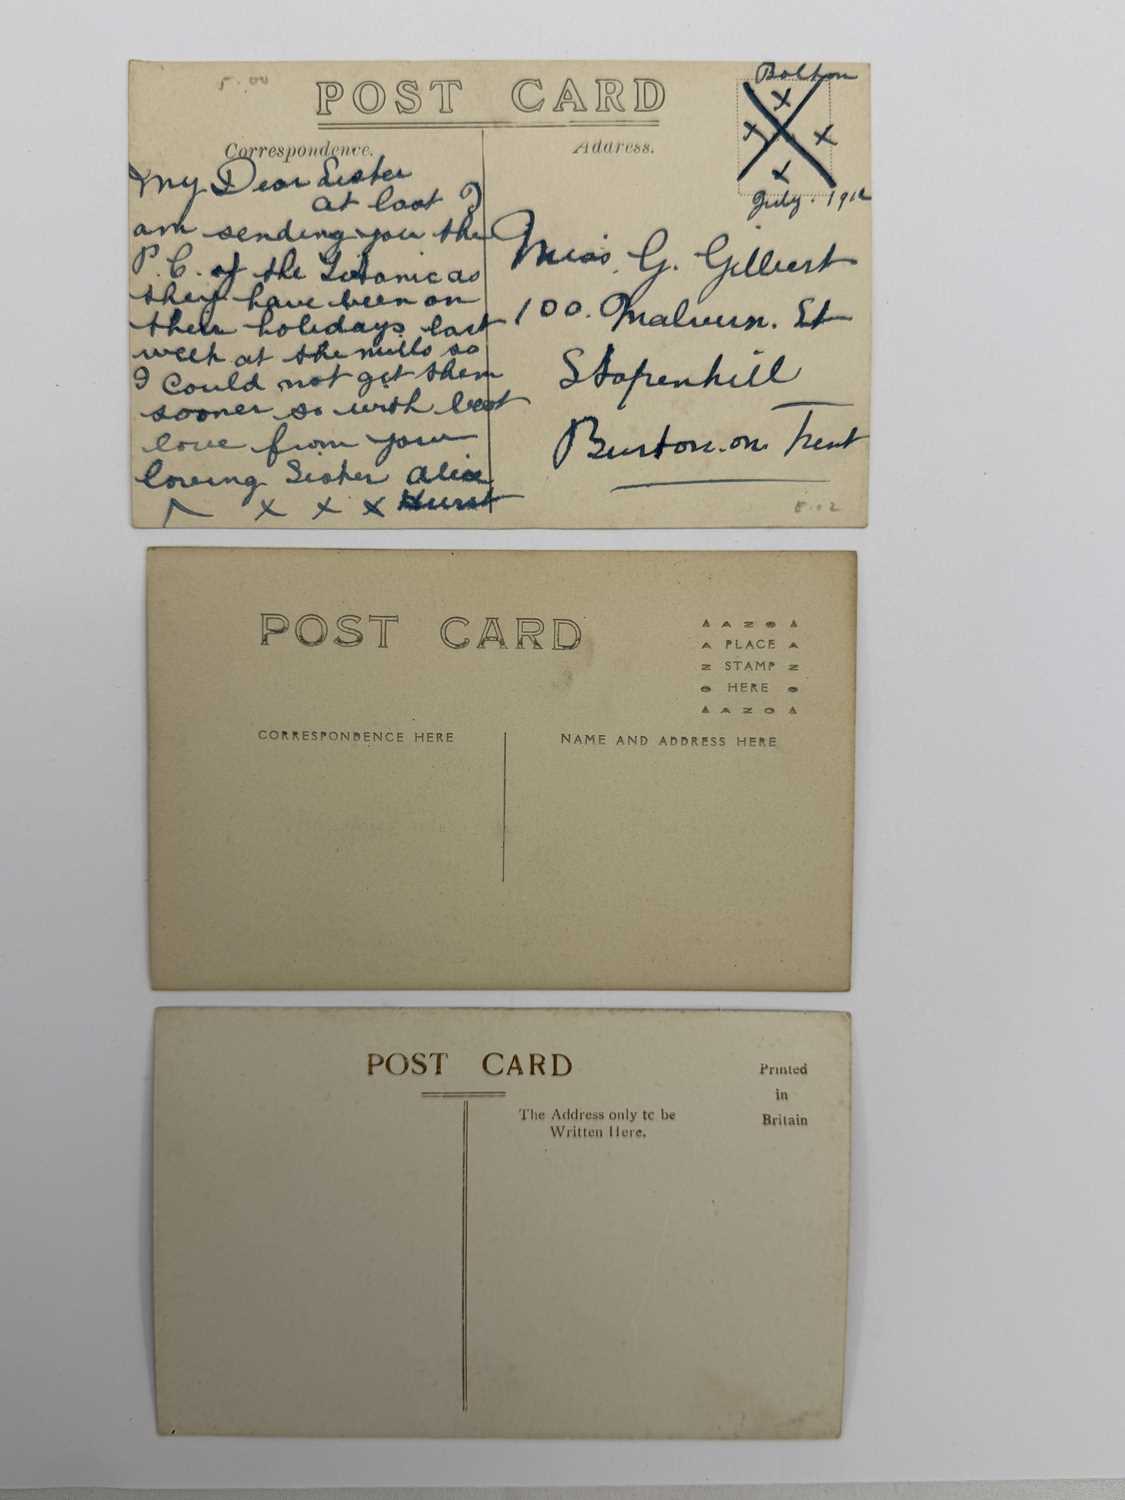 5.00
POST CARD
Bolton
x
x x
x
July. 1912
Correspondence.
Address.
My Dear Sister
at last I
am sending you the
P.C. of the Titanic as
they have been on
their holidays last
week at the mills so
I could not get them
sooner so with best
love from your
loving Sister Alice
x x x Hurst
Miss. G. Gilbert
100. Malvern. St
Stapenhill
Burton. on. Trent
POST CARD
AZO
PLACE
STAMP
HERE
AZO
CORRESPONDENCE HERE
NAME AND ADDRESS HERE
POST CARD
Printed
in
Britain
The Address only to be
Written Here.